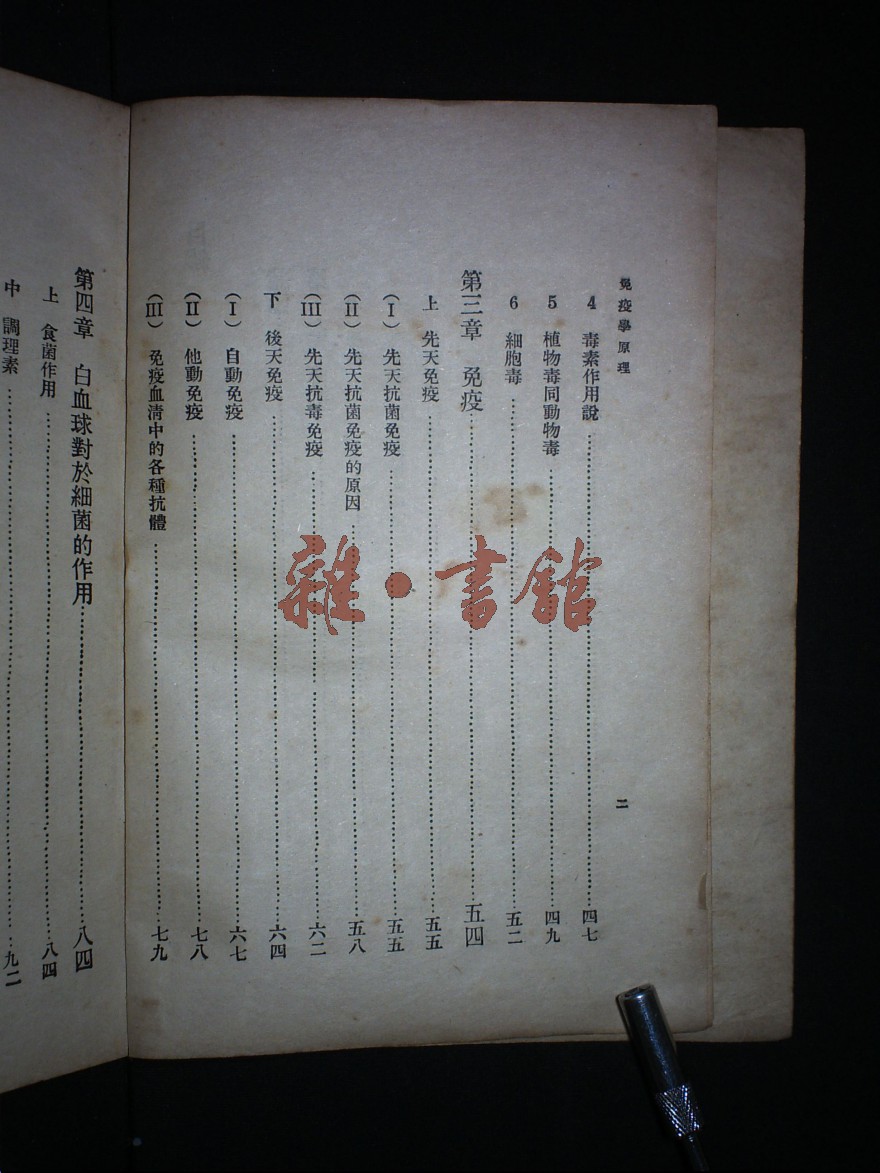 免疫學原理
二
4 毒素作用說……四七
5 植物毒同動物毒……四九
6 細胞毒……五二
第三章 免疫……五四
上 先天免疫……五五
(I) 先天抗菌免疫……五五
(II) 先天抗菌免疫的原因……五八
(III) 先天抗毒免疫……六二
下 後天免疫……六四
(I) 自動免疫……六七
(II) 他動免疫……七八
(III) 免疫血清中的各種抗體……七九
第四章 白血球對於細菌的作用……八四
上 食菌作用……八四
中 調理素……九二
雜·書館